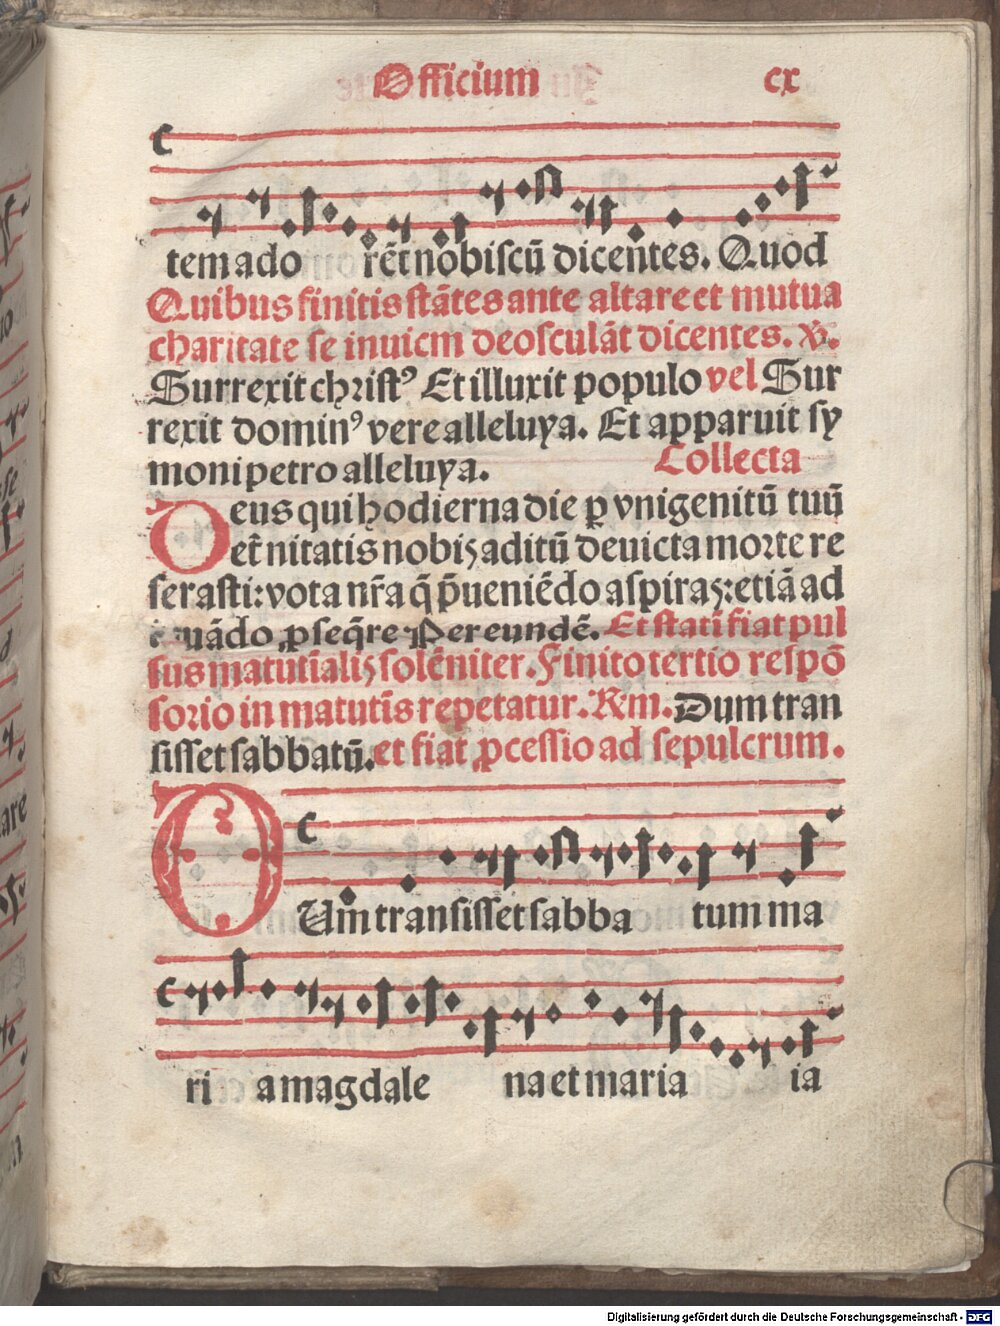 Officium cx
tem ado rēt nobiscū dicentes. Quod
Quibus finitis stātes ante altare et mutua
charitate se inuicm deosculāt dicentes. V.
Surrexit christꝰ Et illuxit populo vel Sur
rexit dominꝰ vere alleluya. Et apparuit sy
moni petro alleluya. Collecta
Deus qui hodierna die ꝑ vnigenitū tuū
et̄nitatis nobiꝫ aditū deuicta morte re
serasti: vota nr̄a q̄ p̄ueniēdo aspiraꝫ: etiā ad
iuuādo ꝓseq̄re Per eundē. Et statī fiat pul
sus matutīaliꝫ solēniter. Finito tertio respō
sorio in matutīs repetatur. Rm. Dum tran
sisset sabbatū. et fiat ꝓcessio ad sepulcrum.
DUm transisset sabba tum ma
ri a magdale na et maria ia
Digitalisierung gefördert durch die Deutsche Forschungsgemeinschaft - DFG